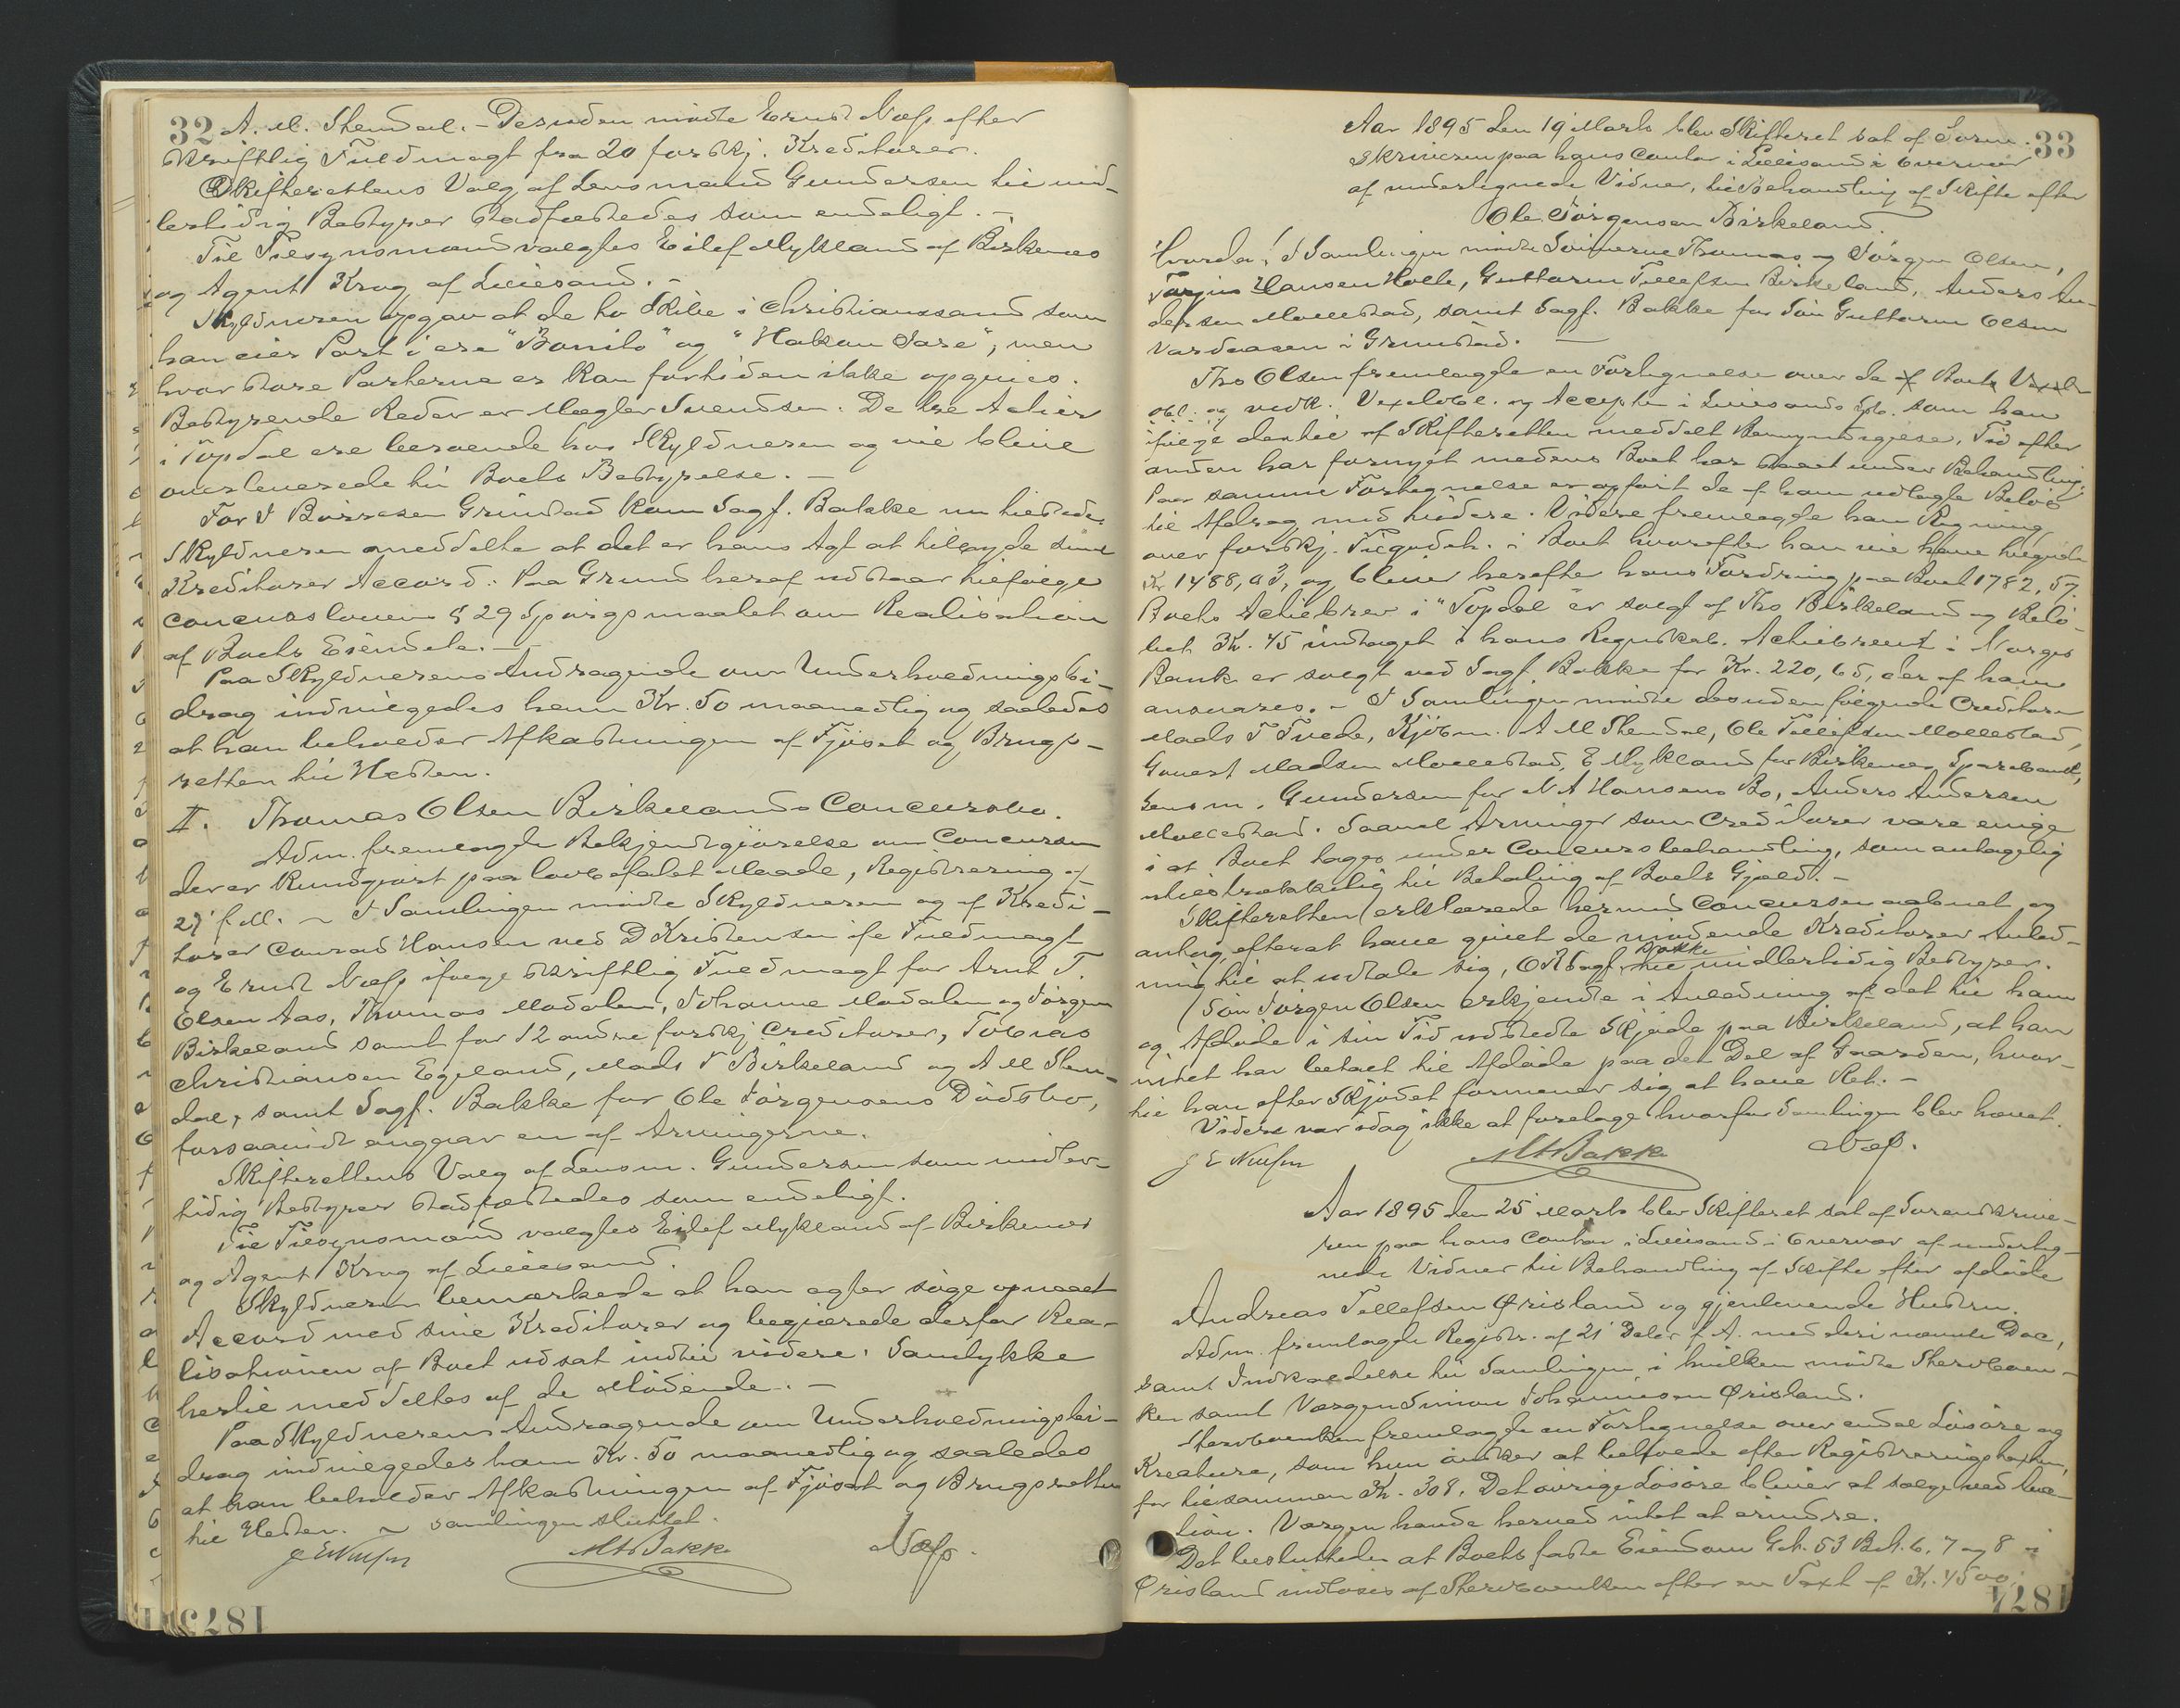 32 A. M. Stendal. – Desuden mødte Ernst Næss efter
skriftlig Fuldmagt fra 20 forskj. Kreditorer.
Skifterettens Valg af Lensmand Gundersen til mid-
lertidig Bestyrer stadfæstedes som endeligt. –
Til Tilsynsmænd valgtes Eilef Mykland af Birkenes
og Agent Krog af Lillesand. –
Skyldneren opgav at de to Skibe i Christianssand som
han eier Part i ere "Bonito" og "Hakon Jarl", men
hvor store Parterne er kan fortiden ikke opgives.
Bestyrende Reder er Mægler Svendsen. De tre Actier
i Topdal ere beroende hos Skyldneren og vil blive
overleverede til Boets Bestyrelse. –
For J Børresen Grimstad kom Sagf. Bakke nu tilstede.
Skyldneren meddelte at det er hans Agt at tilbyde sine
Kreditorer Accord. Paa Grund heraf udstaar ifølge
Concurslovens § 29 Spørgsmaalet om Realisation
af Boets Eiendele. –
Paa Skyldnerens Andragende om Underholdningsbi-
drag indvilgedes ham Kr. 50 maanedlig og saaledes
at han beholder Afkastningen af Fjøset og Brugs-
retten til Hesten.
II. Thomas Olsen Birkelands Concursbo.
Adm. fremlagde Bekjendtgjørelse om Concursen
der er kundgjort paa lovbefalet Maade, Registrering af
27' f. M. – I Samlingen mødte Skyldneren og af Kredi-
torer Conrad Hansen ved D Kristensen ifl Fuldmagt
og Ernst Næss ifølge skriftlig Fuldmagt for Arnt T.
Olsen Aas, Thomas Modalen, Johanne Modalen og Jørgen
Birkeland samt for 12 andre forskj Creditorer, Tobias
Christiansen Egeland, Mads T Birkeland og A M Sten-
dal, samt Sagf. Bakke for Ole Jørgensens Dødsbo,
forsaavidt angaar en af Arvingerne.
Skifterettens Valg af Lensm. Gundersen som midler-
tidig Bestyrer stadfæstedes som endeligt.
Til Tilsynsmænd valgtes Eilef Mykland af Birkenes
og Agent Krog af Lillesand.
Skyldneren bemærkede at han agter søge opnaaet
Accord med sine Kreditorer og begjærede derfor Rea-
lisationen af Boet udsat indtil videre. Samtykke
hertil meddeltes af de Mødende. –
Paa Skyldnerens Andragende om Underholdningsbi-
drag indvilgedes ham Kr. 50 maanedlig og saaledes
at han beholder Afkastningen af Fjøset og Brugsretten
til Hesten. – Samlingen sluttet.
MABakke Næss.
33
Aar 1895 den 19 Marts blev Skifteret sat af Soren-
skriveren paa hans Contor i Lillesand i Overvær
af undertegnede Vidner, til Behandling af Skifte efter
Ole Jørgensen Birkeland.
Hvorda: I Samlingen mødte Sønnerne Thomas og Jørgen Olsen,
Torjus Hansen Holte, Guttorm Tellefsen Birkeland, Anders An-
dersen Mollestad, samt Sagf. Bakke for Søn Guttorm Olsen
Vardaasen i Grimstad. –
Ths Olsen fremlagde en Fortegnelse over de af Boets Vexel-
obl. og vedk. Vexelobl. og Accepter i Lillesands Spb. som han
ifølge dertil af Skifteretten meddelt Bemyndigelse, Tid efter
anden har fornyet medens Boet har staaet under Behandling.
Paa samme Fortegnelse er opført de af ham udlagte Beløb
til Afdrag med videre. Videre fremlagde han Regning
over forskj. Tilgodeh. i Boet hvorefter han vil have tilgode
Kr 1488,03, og bliver herefter hans Fordring paa Boet 1782,57.
Boets Actiebrev i "Topdal" er solgt af Ths Birkeland og Belø-
bet Kr. 45 indtaget i hans Regnskab. Actiebrevet i Norges
Bank er solgt ved Sagf. Bakke for Kr. 220,65, der af ham
ansvares. – I Samlingen mødte desuden følgende Creditorer
Mads T Tvede, Kjøbm. A M Stendal, Ole Tellefsen Mollestad,
Gunst Madsen Mollestad, E Mykland for Birkenes Sparebank,
Lensm. Gundersen for N A Hansens Bo, Anders Andersen
Mollestad. Saavel Arvinger som Creditorer vare enige
i at Boet tages under Concursbehandling, som antagelig
utilstrækkelig til Betaling af Boets Gjæld. –
Skifteretten erklærede hermed Concursen aabnet og
antog, efterat have givet de mødende Kreditorer Anled-
ning til at udtale sig, OR Sagf. Bakke til midlertidig Bestyrer.
Søn Jørgen Olsen erkjendte i Anledning af det til ham
og Afdøde i sin Tid udstedte Skjøde paa Birkeland, at han
intet har betalt til Afdøde paa den Del af Gaarden, hvor-
til han efter Skjødet formener sig at have Ret. –
Videre var idag ikke at foretage hvorfor Samlingen blev hævet.
MABakke Næss.
Aar 1895 den 25 Marts blev Skifteret sat af Sorenskrive-
ren paa hans Contor i Lillesand i Overvær af underteg-
nede Vidner til Behandling af Skifte efter afdøde
Andreas Tellefsen Ørisland og gjenlevende Hustru.
Adm. fremlagde Registr. af 21' Decbr f. A. med deri nævnte Doc,
samt Indkaldelse til Samlingen i hvilken mødte Stervboen-
ken samt Værgen Simon Johannesen Ørisland.
Stervboenken fremlagde en Fortegnelse over endel Løsøre og
Kreature, som hun ønsker at beholde efter Registreringstaxten,
for tilsammen Kr. 308. Det øvrige Løsøre bliver at sælge ved Auc-
tion. Værgen havde herved intet at erindre.
Det besluttedes at Boets faste Eiendom G.N. 53 B.N. 6, 7 og 8 i
Ørisland indløses af Stervboenken efter en Taxt af Kr. 4500,